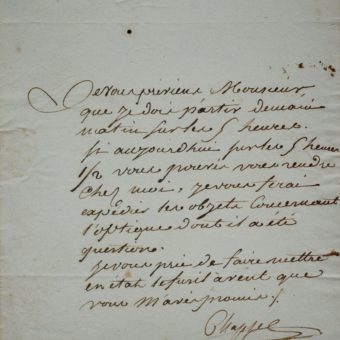 Je vous préviens Monsieur,
que je dois partir demain
matin sur les 5 heures.
si aujourdhui sur les 5 heures
1/2 vous pouvés vous rendre
chez moi, je vous ferai
expédier les objets Concernant
l'optique dont il a été
question.
je vous prie de faire mettre
en état le fusil à vent que
vous m'avés promis /.
Chappe